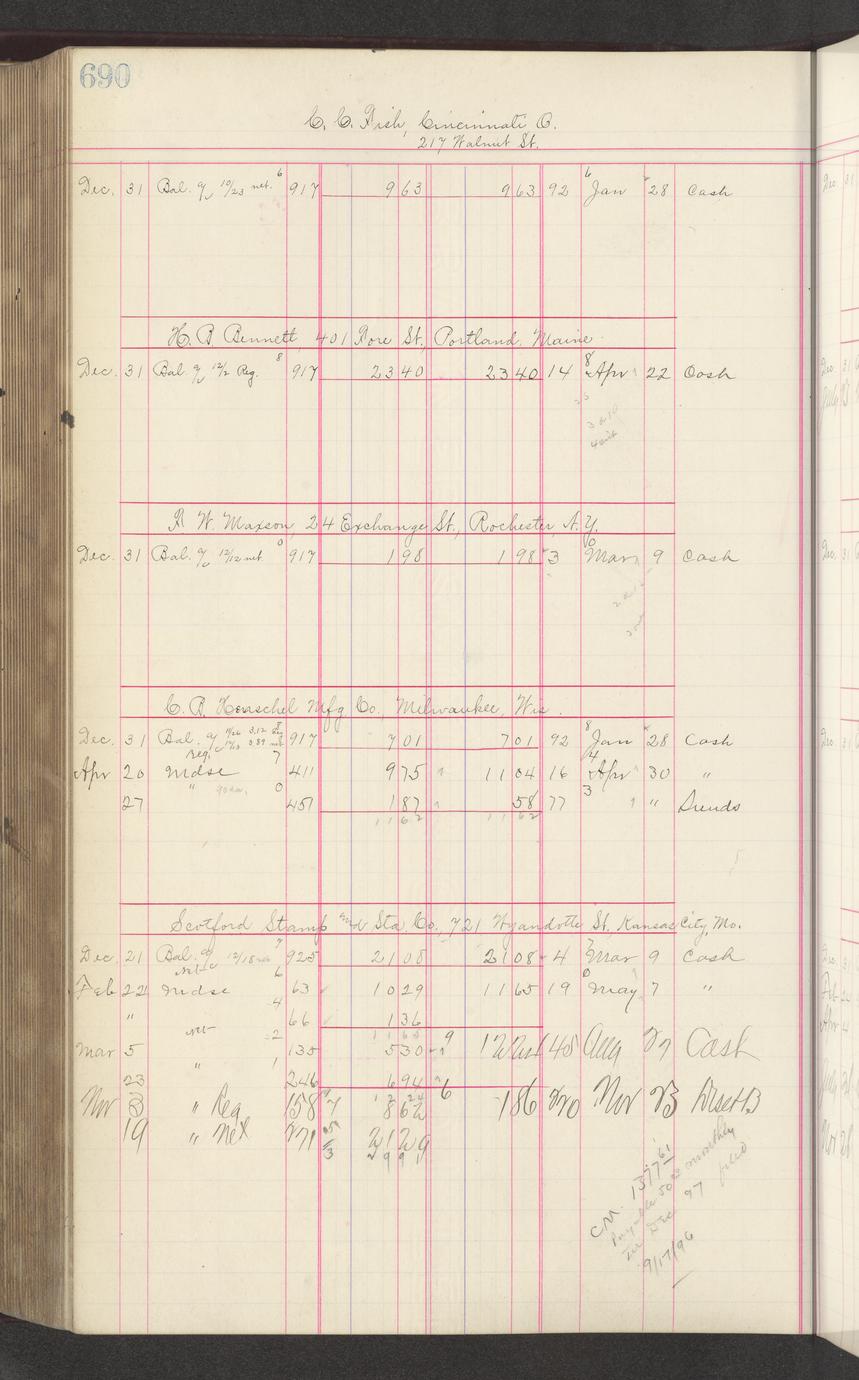 690
C. C. Fish, Cincinnati O.
217 Walnut St.
Dec. 31 Bal. a/c 10/23 net. 6 917 963 963 92 6 Jan 28 Cash
H. B. Bennett, 401 Fore St., Portland, Maine
Dec. 31 Bal. a/c 12/2 Reg. 8 917 2340 2340 14 8 Apr 22 Cash
W. Maxson, 24 Exchange St., Rochester, N.Y.
Dec. 31 Bal. a/c 12/12 net. 0 917 198 198 3 Mar 9 Cash
Mfg Co., Milwaukee, Wis.
Dec. 31 Bal. a/c 917 701 701 92 8 Jan 28 Cash
Reg. 7 4
Apr 20 Mdse 411 975 1104 16 Apr 30 "
" 0 3
27 451 187 58 77 " "
1162 1162
Scotford Stamp and Sta. Co., 721 Wyandotte St., Kansas City, Mo.
Dec. 21 Bal. a/c 12/18 7 925 2108 2108 4 7 Mar 9 Cash
6
Feb 22 Mdse 63 1029 1165 19 May 7 "
4
" 66 136
Net 2 1165
Mar 5 " 135 530 45 Aug 27 Cash
1
23 246 694 6
Nov 3 " Reg 158 862 186 220 Nov 23
19 " Net 271 2129
CM. 1377 61
Payable 50 monthly
in Dec 97
9/17/96